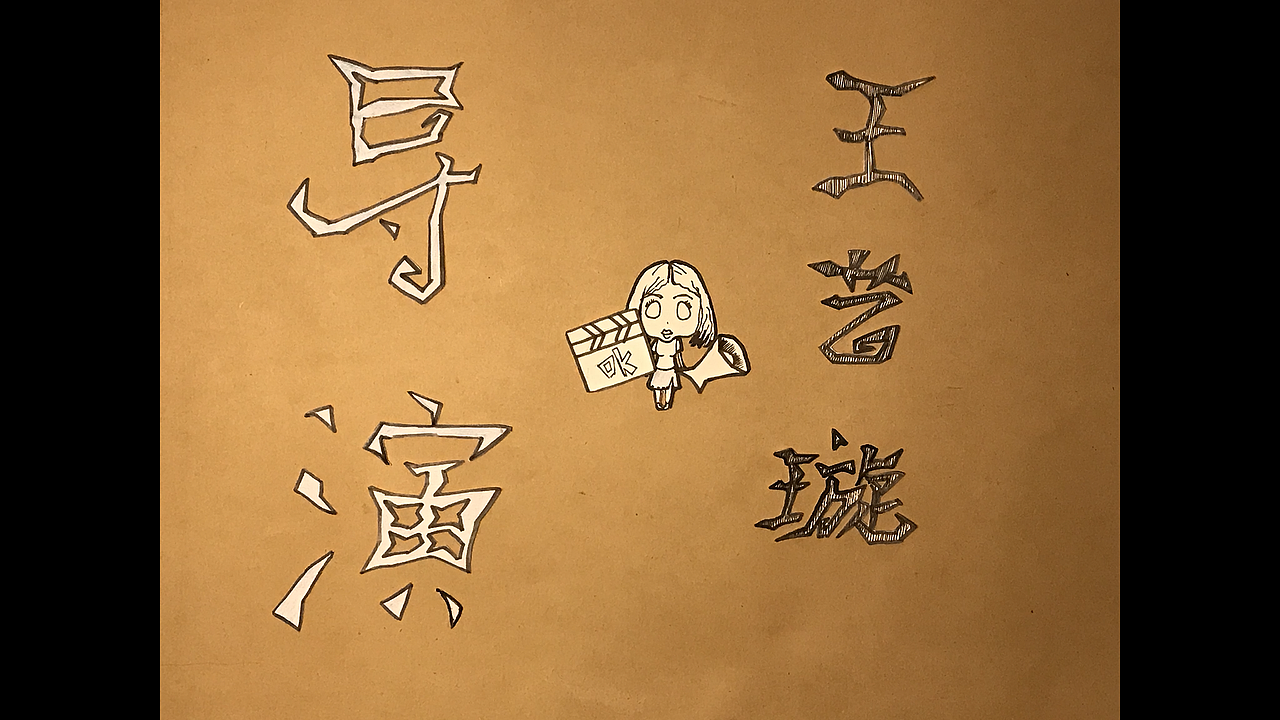 导演
王艺璇
ok